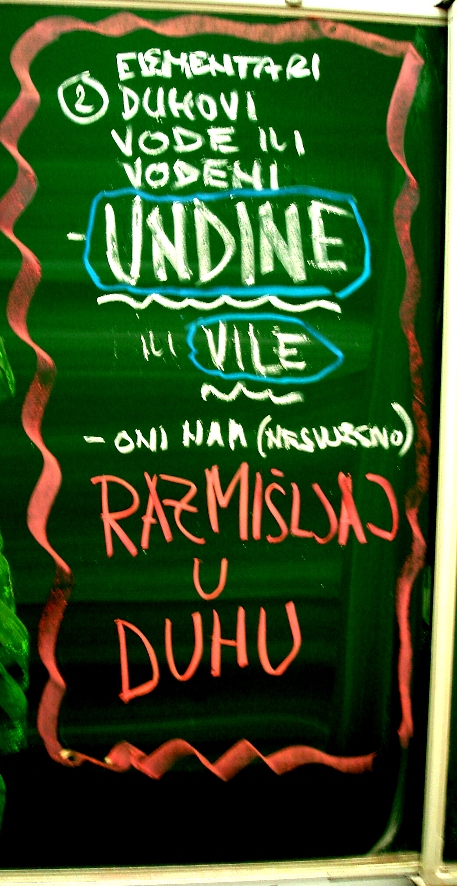 ELEMENTARI
② DUHOVI
VODE ILI
VODENI
- UNDINE
ILI VILE
- ONI NAM (NESVJESNO)
RAZMIŠLJAJ
U
DUHU